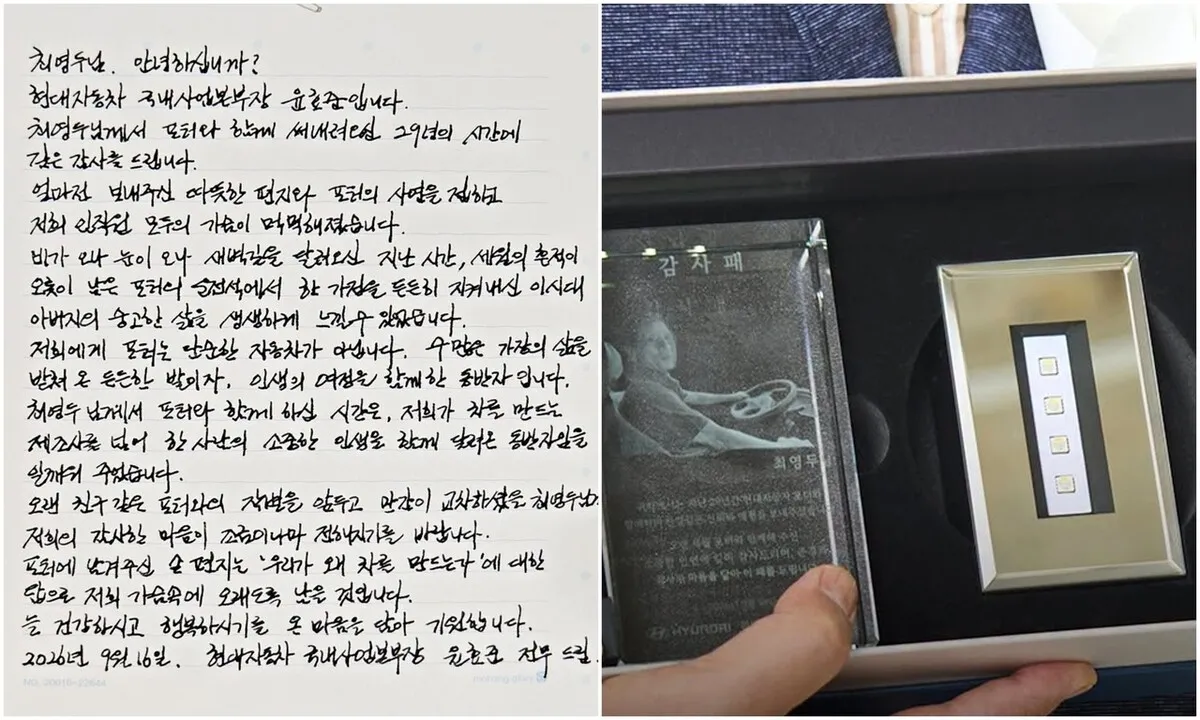 최영두님. 안녕하십니까?
현대자동차 국내사업본부장 윤효준입니다.
최영두님께서 포터와 함께 써내려오신 29년의 시간에
깊은 감사를 드립니다.
얼마전 보내주신 따뜻한 편지와 포터의 사연을 접하고
저희 임직원 모두의 가슴이 먹먹해졌습니다.
비가 오나 눈이 오나 새벽길을 달려오신 지난 시간, 세월의 흔적이
오롯이 남은 포터의 운전석에서 한 가정을 든든히 지켜내신 이시대
아버지의 숭고한 삶을 생생하게 느낄 수 있었습니다.
저희에게 포터는 단순한 자동차가 아닙니다. 수많은 가장의 삶을
받쳐 온 든든한 발이자, 인생의 여정을 함께한 동반자입니다.
최영두님께서 포터와 함께 하신 시간은, 저희가 차를 만드는
제조사를 넘어 한 사람의 소중한 인생을 함께 달려온 동반자임을
일깨워 주었습니다.
오랜 친구 같은 포터와의 작별을 앞두고 만감이 교차하셨을 최영두님께
저희의 감사한 마음이 조금이나마 전해지기를 바랍니다.
포터에 남겨주신 손 편지는 '우리가 왜 차를 만드는가'에 대한
답으로 저희 가슴속에 오래도록 남을 것입니다.
늘 건강하시고 행복하시기를 온 마음을 담아 기원합니다.
2026년 9월 16일. 현대자동차 국내사업본부장 윤효준 전무 드림.
morning glory
감사패
최영두님
소중한 인연에 깊이 감사드리며, 존경과
감사의 마음을 담아 이 패를 드립니다
HYUNDAI